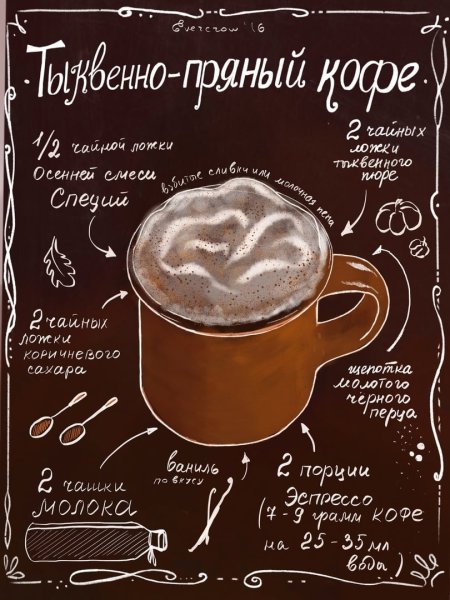 Evercrow '16
Тыквенно-пряный кофе
1/2 чайной ложки
Осенней смеси
Специй
взбитые сливки или молочная пена
2 чайных
ложки
тыквенного
пюре
2 чайных
ложки
коричневого
сахара
щепотка
молотого
чёрного
перца
2 чашки
молока
ваниль
по вкусу
2 порции
Эспрессо
(7-9 грамм кофе
на 25-35 мл
воды)